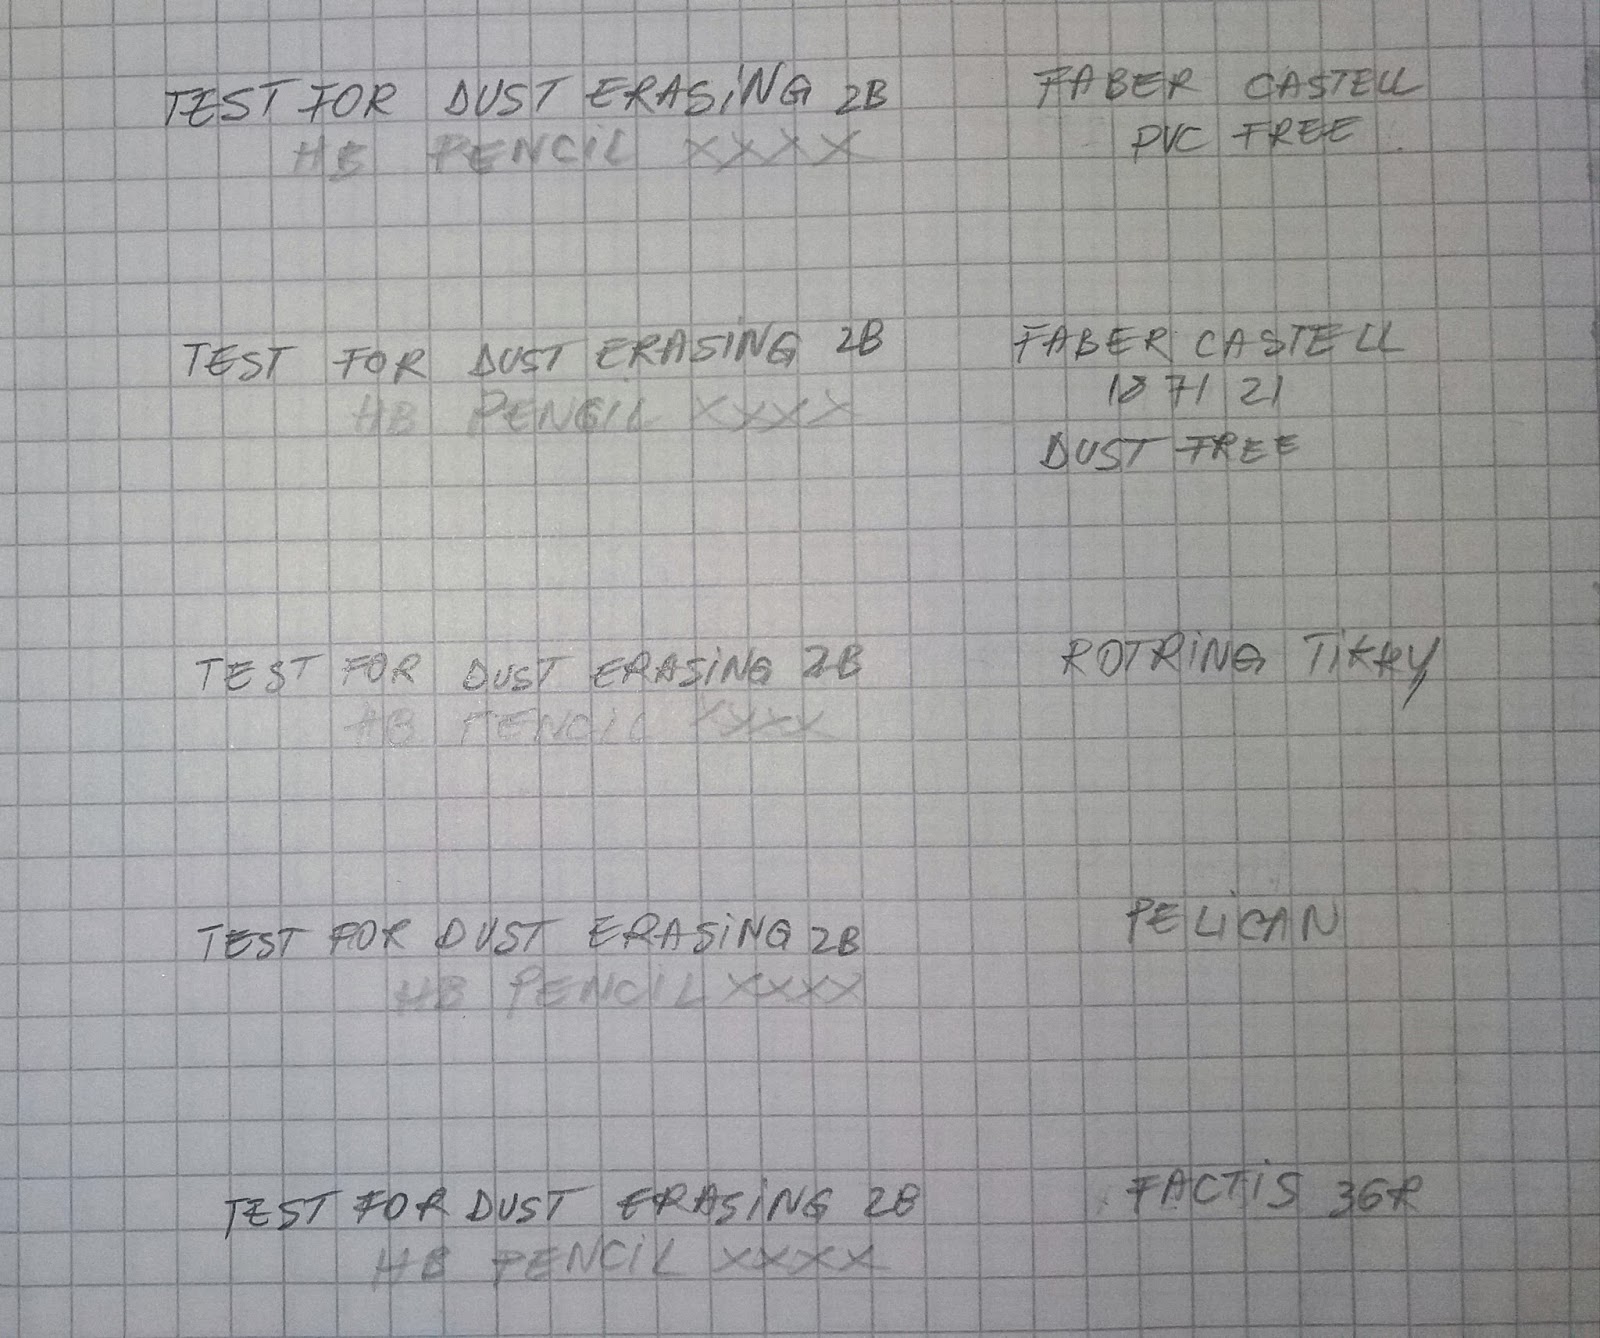 TEST FOR DUST ERASiNG 2B FABER CASTELL
HB PENCiL XXXX PVC FREE
TEST FOR DUST ERASiNG 2B FABER CASTELL
HB PENCiL XXXX 18 71 21
DUST FREE
TEST FOR DUST ERASiNG 2B ROTRiNG TiKKY
HB PENCiL XXXX
TEST FOR DUST ERASiNG 2B PELiCAN
HB PENCIL XXXX
TEST FOR DUST ERASiNG 2B FACTiS 36R
HB PENCiL XXXX